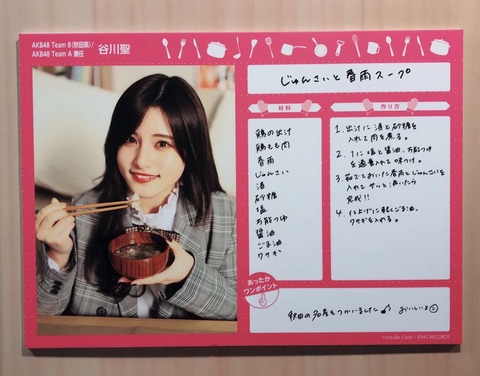 AKB48 Team 8(秋田県)/
AKB48 Team A 兼任
谷川聖
じゅんさいと春雨スープ
材料
鶏の出汁
鶏もも肉
春雨
じゅんさい
酒
砂糖
塩
万能つゆ
醤油
ごま油
ワケギ
作り方
1. 出汁に酒と砂糖を
入れて肉を煮る。
2. 1に塩と醤油、万能つゆ
を適量入れて味つけ。
3. 茹でておいた春雨とじゅんさいを
入れてサッと沸いたら
完成!!
4. 仕上げに軽くごま油、
ワケギを入れる。
あったか
ワンポイント
秋田の名産をつかいました♪ おいしいよ☺
©You,Be Cool! / KING RECORDS